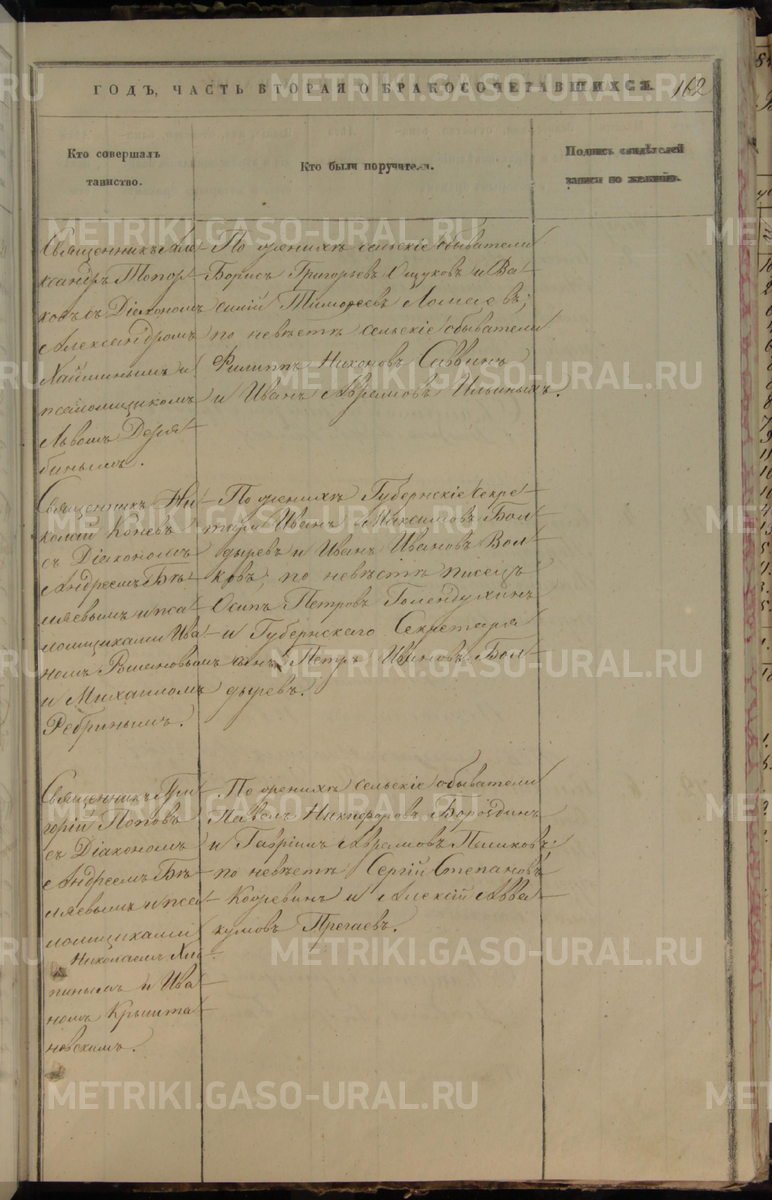 ГОДЪ, ЧАСТЬ ВТОРАЯ О БРАКОСОЧЕТАВШИХСЯ. 162
Кто совершалъ
таинство.
Кто были поручители.
Подпись свидѣтелей
записи по желанію.
Священникъ Але-
ксандръ Топор-
ковъ съ Діакономъ
Александромъ
и
псаломщикомъ
Львомъ Деря-
бинымъ.
По женихѣ сельскіе обыватели
Борисъ Григорьевъ и Ва-
силій Тимофеевъ
по невѣстѣ сельскіе обыватели
Филиппъ Никоновъ Саввинъ
и Иванъ Аврамовъ Ильиныхъ.
Священникъ Ни-
колай Коневъ
съ Діакономъ
Андреемъ Бѣ-
ляевымъ и пса-
ломщиками Ива-
номъ Романовымъ
и Михаиломъ
Ребринымъ.
По женихѣ Губернскіе Секре-
тари Иванъ Максимовъ Бол-
дыревъ и Иванъ Ивановъ Вол-
ковъ; по невѣстѣ писецъ
Осипъ Петровъ Голендухинъ
и Губернскаго Секретаря
сынъ Петръ Ивановъ Бол-
дыревъ.
Священникъ Гри-
горій Поповъ
съ Діакономъ
Андреемъ Бѣ-
ляевымъ и пса-
ломщиками
Николаемъ Хлѣ-
тинымъ и Ива-
номъ Крышта-
новскимъ.
По женихѣ сельскіе обыватели
Павелъ Никифоровъ Бороздинъ
и Гавріилъ Аврамовъ
по невѣстѣ: Сергій Степановъ
и Алексій Авва-
кумовъ
METRIKI.GASO-URAL.RU